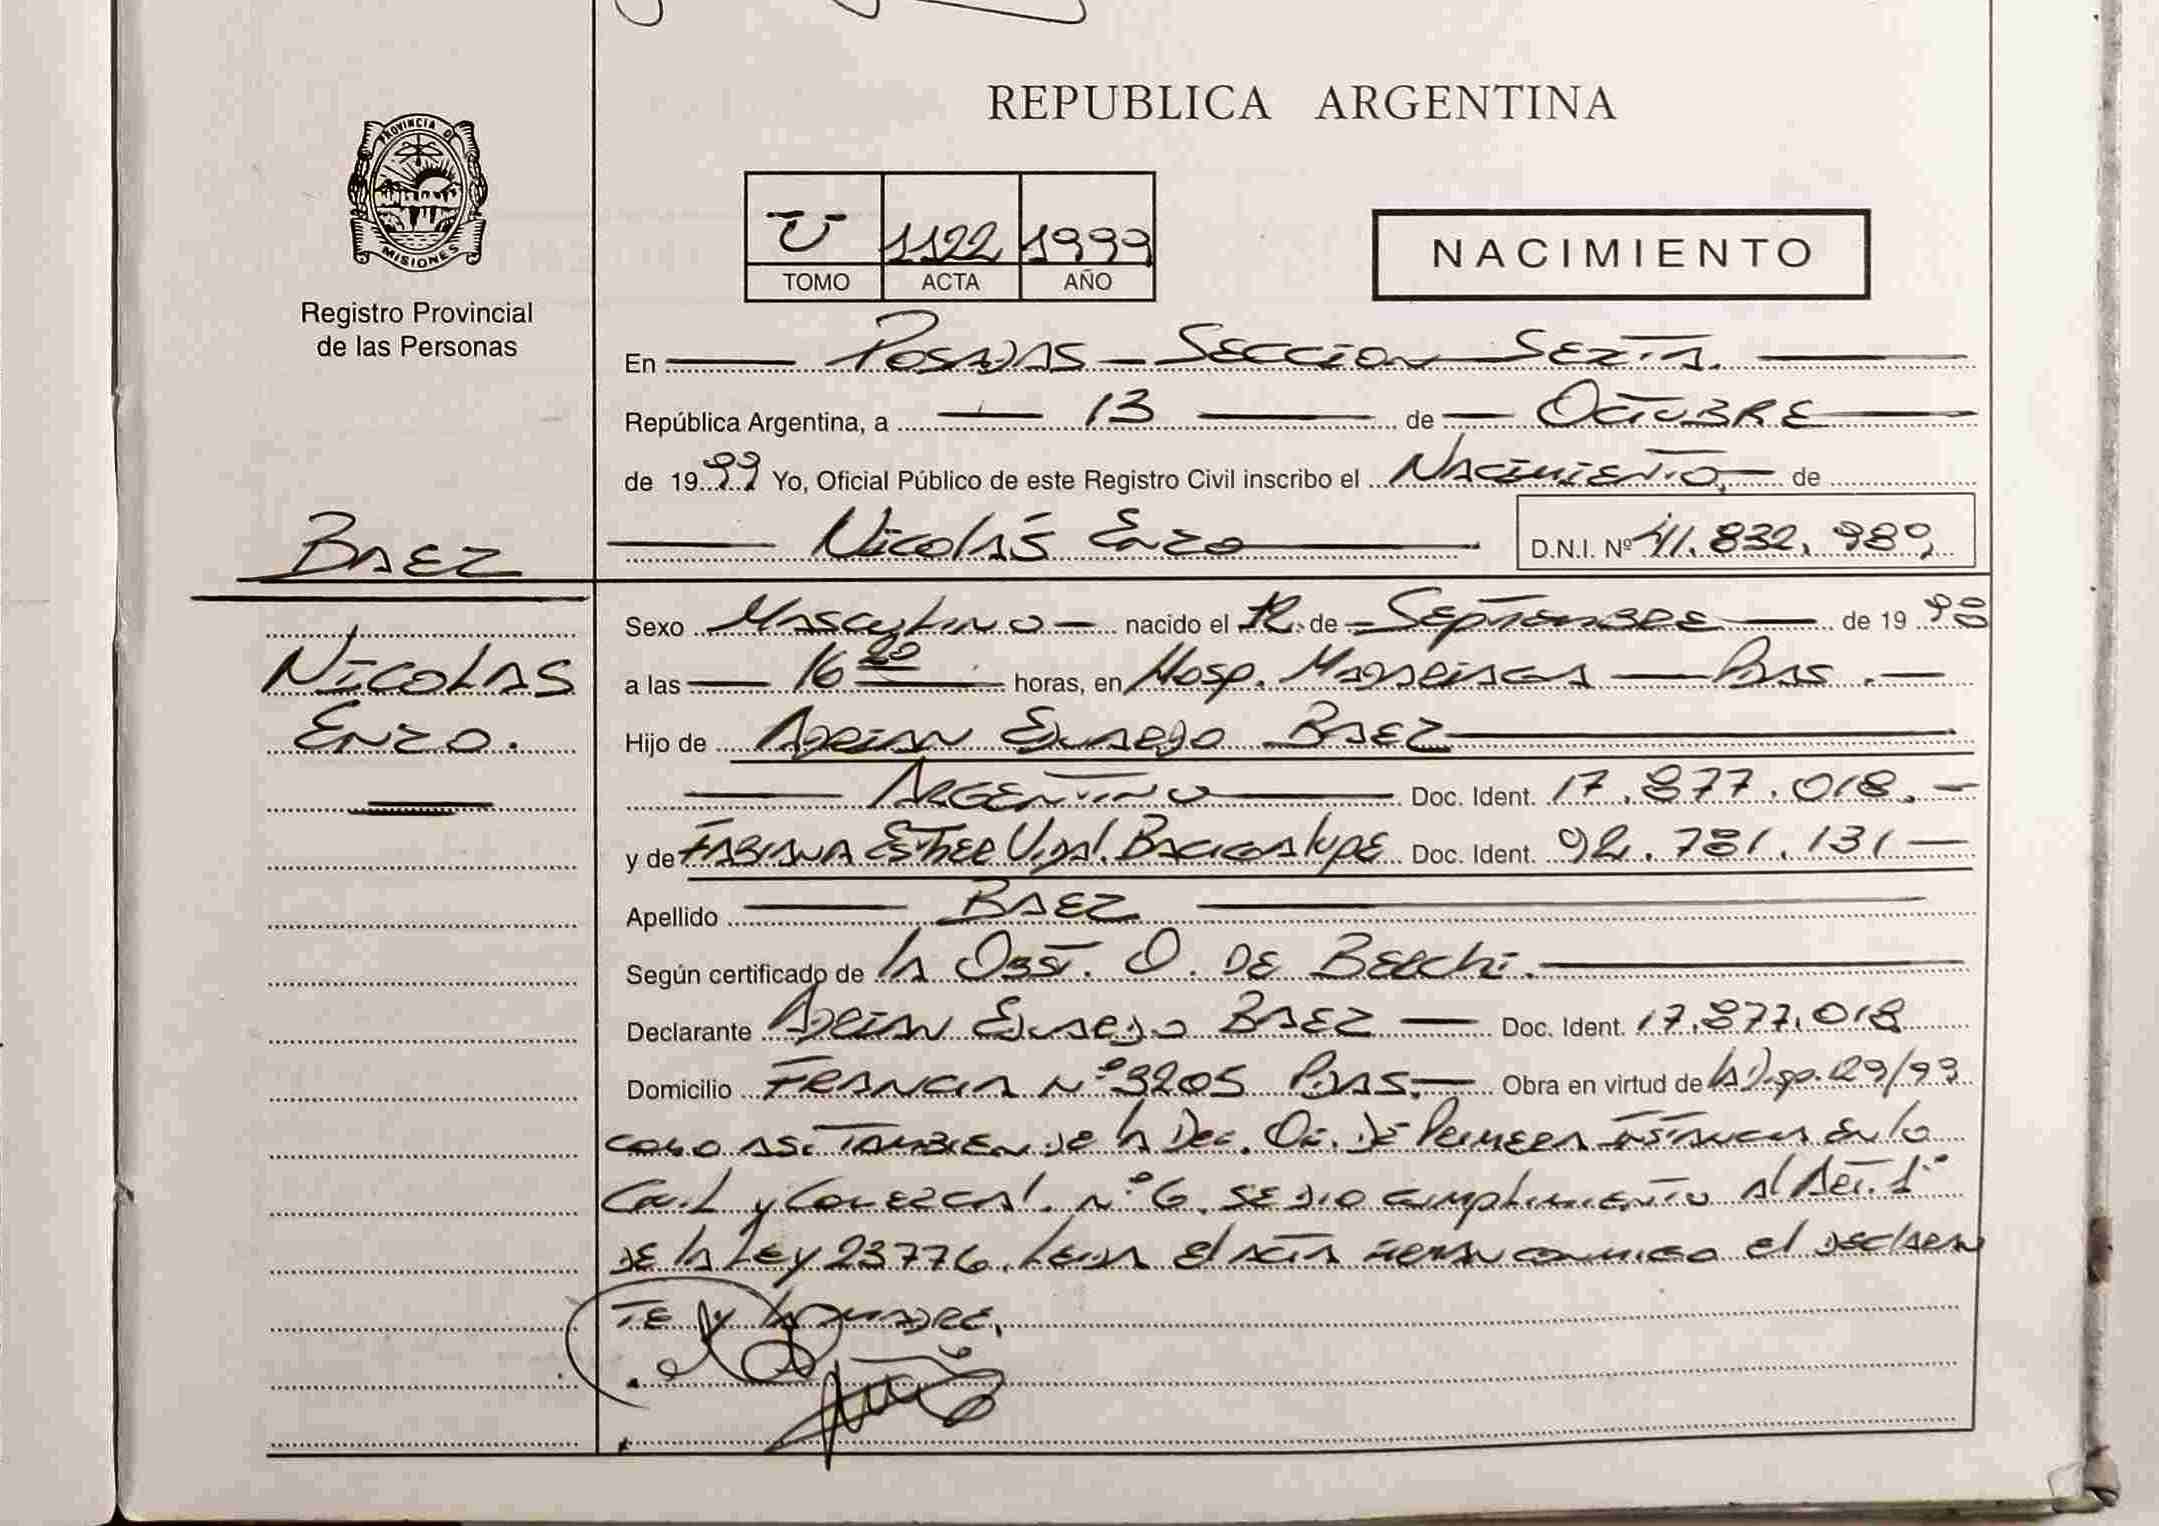 REPUBLICA ARGENTINA
PROVINCIA DE
MISIONES
Registro Provincial
de las Personas
U 1122 1999
TOMO ACTA AÑO
NACIMIENTO
En POSADAS - SECCION SEXTA.
República Argentina, a 13 de OCTUBRE
de 1999 Yo, Oficial Público de este Registro Civil inscribo el NACIMIENTO, de
Nicolás Enzo D.N.I. Nº 41.832.980,
BAEZ
NICOLAS
ENZO.
Sexo MASCULINO nacido el 12 de SEPTIEMBRE de 19 98
a las 16 20 horas, en Hosp. MADARIAGA - Pdas.
Hijo de ADRIAN EDUARDO BAEZ
ARGENTINO Doc. Ident. 17.877.018.
y de FABIANA ESTHER Vidal BACIGALUPE Doc. Ident. 92.781.131
Apellido BAEZ
Según certificado de la Obst. O. DE BELCHI.
Declarante ADRIAN EDUARDO BAEZ Doc. Ident. 17.877.018
Domicilio FRANCIA Nº 3205 Pdas. Obra en virtud de la Disp. 29/93
COMO ASI TAMBIEN DE la DEC. DE PRIMERA INSTANCIA EN lo
Civil y COMERCIAL Nº 6. SE DIO cumplimiento Al Art. 1º
DE la LEY 23776. LEIDA El ACTA FIRMAN CONMIGO el DECLARAN
TE y la MADRE.